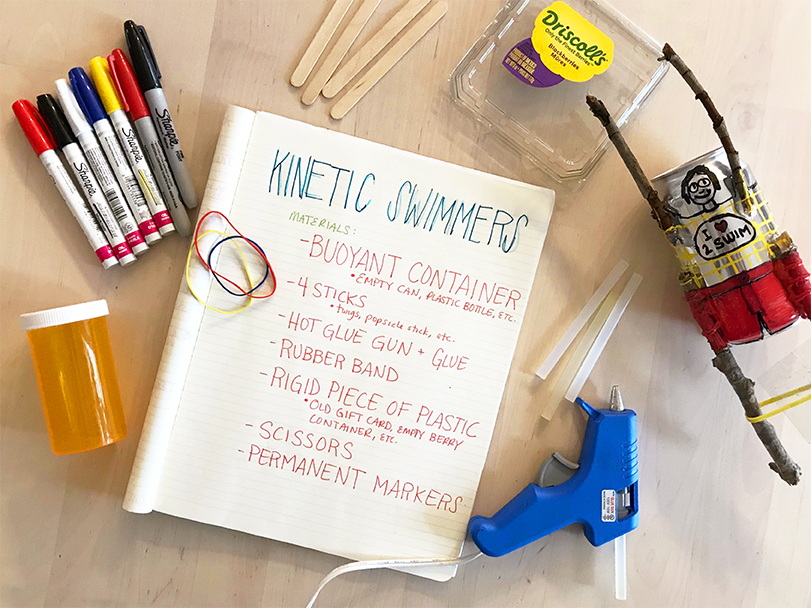 KINETIC SWIMMERS
MATERIALS:
-BUOYANT CONTAINER
•EMPTY CAN, PLASTIC BOTTLE, ETC.
-4 STICKS
•twigs, popsicle stick, etc.
-HOT GLUE GUN + GLUE
-RUBBER BAND
-RIGID PIECE OF PLASTIC
•OLD GIFT CARD, EMPTY BERRY
CONTAINER, ETC.
-SCISSORS
-PERMANENT MARKERS
Driscoll's
Only the Finest Berries
Blackberries
Mûres
I ♥
2 SWIM
Sharpie
Sharpie
Sharpie
Sharpie